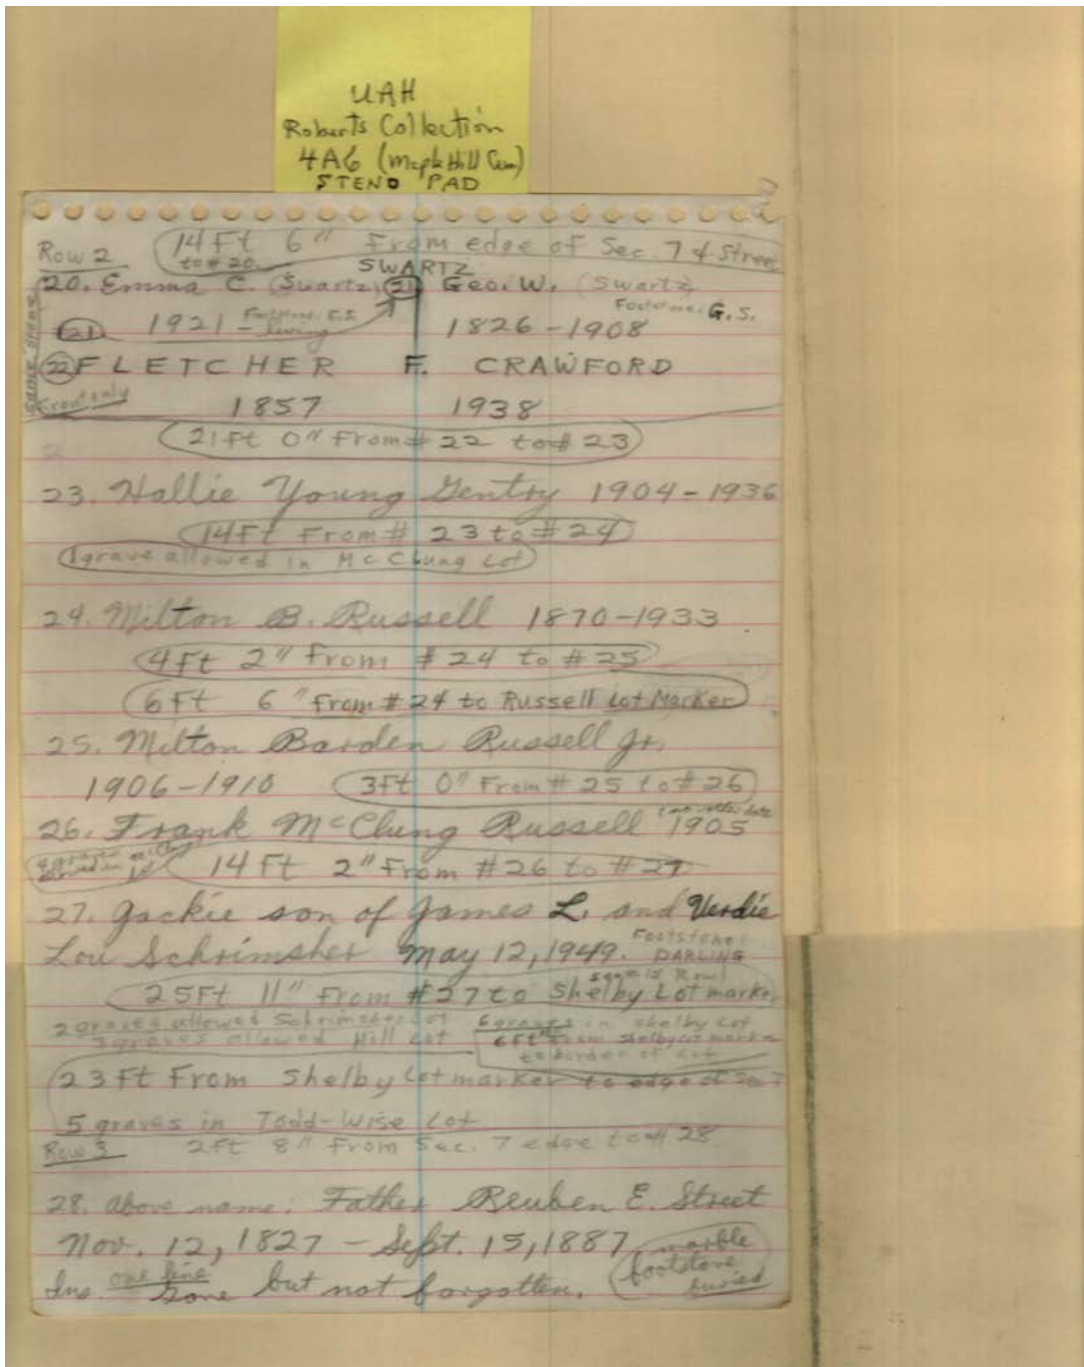 UAH
Roberts Collection
4A6 (Maple Hill Cem)
STENO PAD
Row 2 14Ft 6" From edge of Sec. 7 & Street
to #20
SWARTZ
20. Emma C. (Swartz) (21) Geo. W. (Swartz)
Footstone: G.S.
(21) 1921 - Footstone: E.S. living 1826-1908
(22) FLETCHER F. CRAWFORD
Front only
1857 1938
21Ft 0" From #22 to #23
23. Hallie Young Gentry 1904-1936
14Ft From # 23 to #24
1 grave allowed in McClung Lot
24. Milton B. Russell 1870-1933
4Ft 2" From #24 to #25
6Ft 6" From #24 to Russell Lot Marker
25. Milton Barden Russell Jr.
1906-1910 3Ft 0" From #25 to #26
26. Frank McClung Russell 1905 (no other date
allowed in McClung Lot
14Ft 2" From #26 to #27
27. Jackie son of James L. and Verdie
Lou Schrimsher May 12, 1949. Footstone:
DARLING
25Ft 11" From #27 to Shelby Lot marker
2 graves allowed Schrimsher Lot
3 graves allowed Hill Lot
6 graves in Shelby Lot
6Ft From Shelby Lot marker
to border of Lot
23Ft From Shelby Lot marker to edge of Sec. 7
5 graves in Todd-Wise Lot
Row 3 2Ft 8" From Sec. 7 edge to #28
28. Above name: Father Reuben E. Street
Nov. 12, 1827 - Sept. 15, 1887, marble
footstone
buried
Ins. one line
Gone but not forgotten.